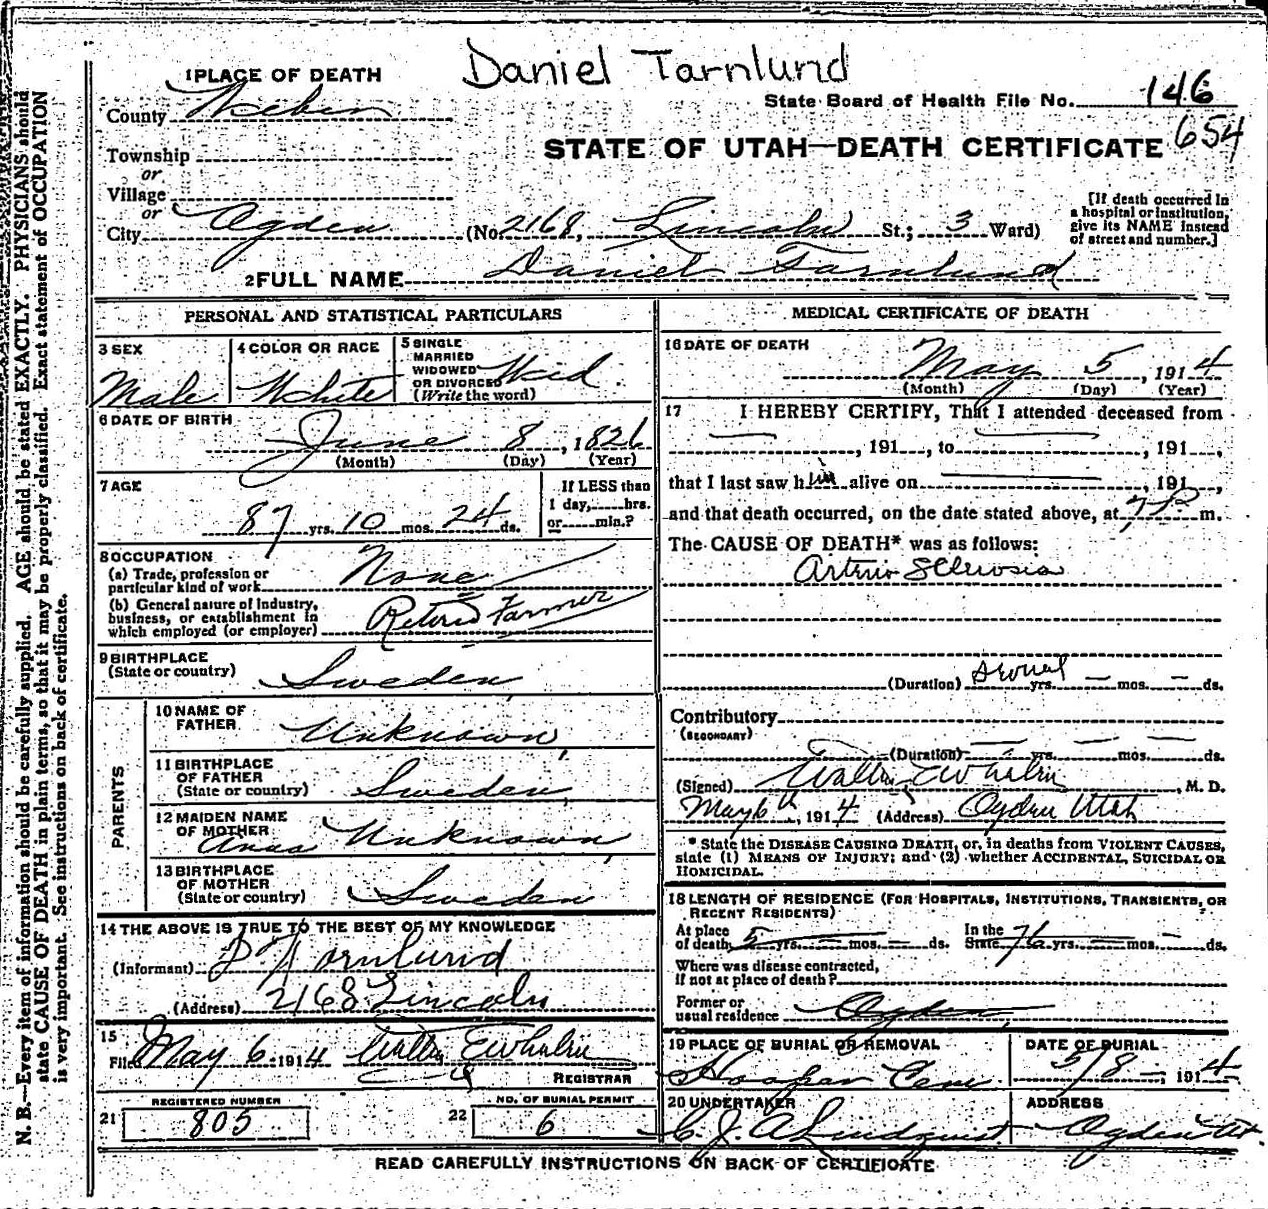 Daniel Tarnlund
1 PLACE OF DEATH
County Weber
State Board of Health File No. 146
654
STATE OF UTAH—DEATH CERTIFICATE
Township
or
Village
or
City Ogden (No. 2168, Lincoln St.; 3 Ward)
[If death occurred in
a hospital or institution,
give its NAME instead
of street and number.]
2 FULL NAME Daniel Tarnlund
PERSONAL AND STATISTICAL PARTICULARS
3 SEX
Male
4 COLOR OR RACE
White
5 SINGLE
MARRIED
WIDOWED
OR DIVORCED Wid.
(Write the word)
6 DATE OF BIRTH
June 8, 1826
(Month) (Day) (Year)
7 AGE
87 yrs. 10 mos. 24 ds.
If LESS than
1 day, hrs.
or min.?
8 OCCUPATION
(a) Trade, profession or
particular kind of work None
(b) General nature of Industry,
business, or establishment in
which employed (or employer) Retired Farmer
9 BIRTHPLACE
(State or country) Sweden
PARENTS
10 NAME OF
FATHER Unknown
11 BIRTHPLACE
OF FATHER
(State or country) Sweden
12 MAIDEN NAME
OF MOTHER
Anna Unknown
13 BIRTHPLACE
OF MOTHER
(State or country) Sweden
14 THE ABOVE IS TRUE TO THE BEST OF MY KNOWLEDGE
(Informant) Tornlund
(Address) 2168 Lincoln
15
Filed May 6 1914
REGISTRAR
21 REGISTERED NUMBER
805
22 NO. OF BURIAL PERMIT
6
MEDICAL CERTIFICATE OF DEATH
16 DATE OF DEATH
May 5, 1914
(Month) (Day) (Year)
17 I HEREBY CERTIFY, That I attended deceased from
, 191 , to , 191 ,
that I last saw him alive on , 191 ,
and that death occurred, on the date stated above, at 7 P m.
The CAUSE OF DEATH* was as follows:
Arterio Sclerosis
(Duration) yrs. — mos. — ds.
Contributory
(SECONDARY)
(Duration) yrs. mos. ds.
(Signed) , M. D.
May 6th, 1914 (Address) Ogden Utah
* State the DISEASE CAUSING DEATH, or, in deaths from VIOLENT CAUSES,
state (1) MEANS OF INJURY; and (2) whether ACCIDENTAL, SUICIDAL OR
HOMICIDAL.
18 LENGTH OF RESIDENCE (FOR HOSPITALS, INSTITUTIONS, TRANSIENTS, OR
RECENT RESIDENTS)
At place
of death 5 yrs. — mos. — ds.
In the
State yrs. — mos. — ds.
Where was disease contracted,
if not at place of death?
Former or
usual residence Ogden
19 PLACE OF BURIAL OR REMOVAL
Hooper Cem
DATE OF BURIAL
5/8 —, 1914
20 UNDERTAKER
C. J. A Lindquist
ADDRESS
Ogden Ut.
READ CAREFULLY INSTRUCTIONS ON BACK OF CERTIFICATE
N. B.—Every item of information should be carefully supplied. AGE should be stated EXACTLY. PHYSICIANS should
state CAUSE OF DEATH in plain terms, so that it may be properly classified. Exact statement of OCCUPATION
is very important. See instructions on back of certificate.